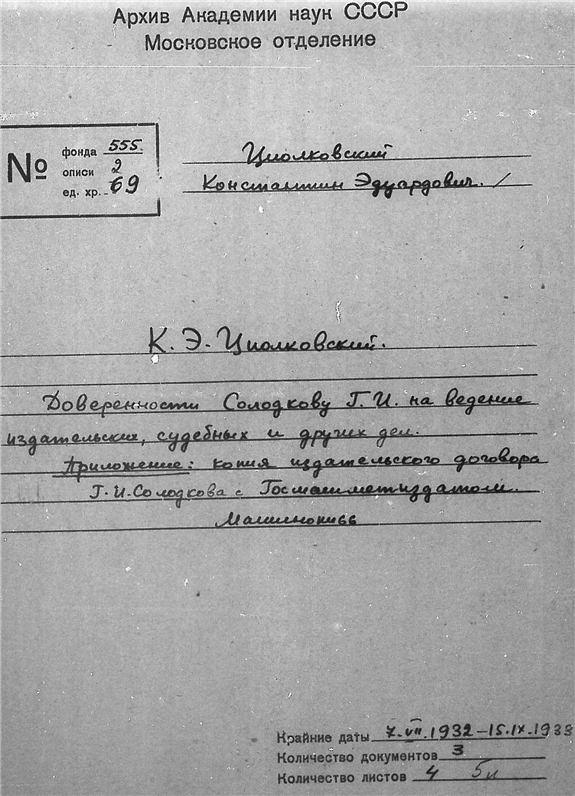 Архив Академии наук СССР
Московское отделение
№
фонда 555.
описи 2
ед. хр. 69
Циолковский
Константин Эдуардович. /
К. Э. Циолковский.
Доверенности Солодкову Г. И. на ведение
издательских, судебных и других дел.
Приложение: копия издательского договора
Г. И. Солодкова с Госмашметиздатом.
Машинопись
Крайние даты 7.VII.1932–15.IX.1933
Количество документов 3
Количество листов 4 5л